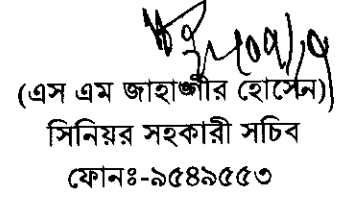 (এস এম জাহাঙ্গীর হোসেন)
সিনিয়র সহকারী সচিব
ফোনঃ-৯৫৪৯৫৫৩